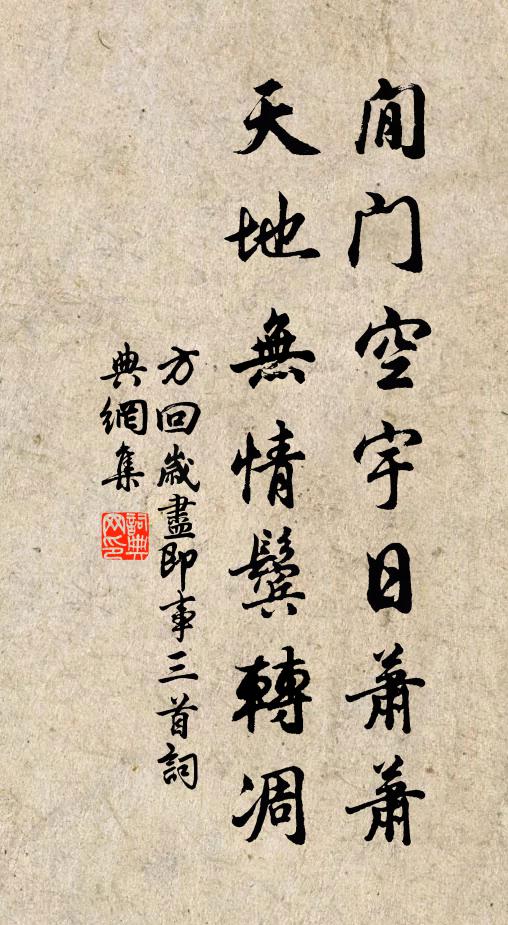 閒门空宇日蕭蕭
天地無情鬢轉凋
方回歲盡即事三首詞
典網集
詞典網印